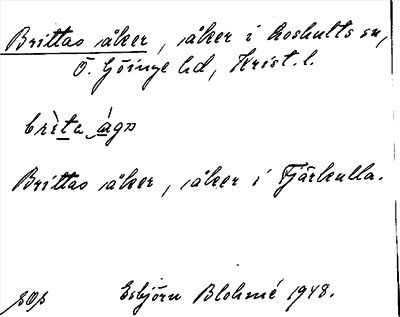 Brittas åker, åker i Loshults sn,
Ö. Göinge hd, Krist. l.
Brittas åker, åker i Fjärkulla.
Esbjörn Blohmé 1948.